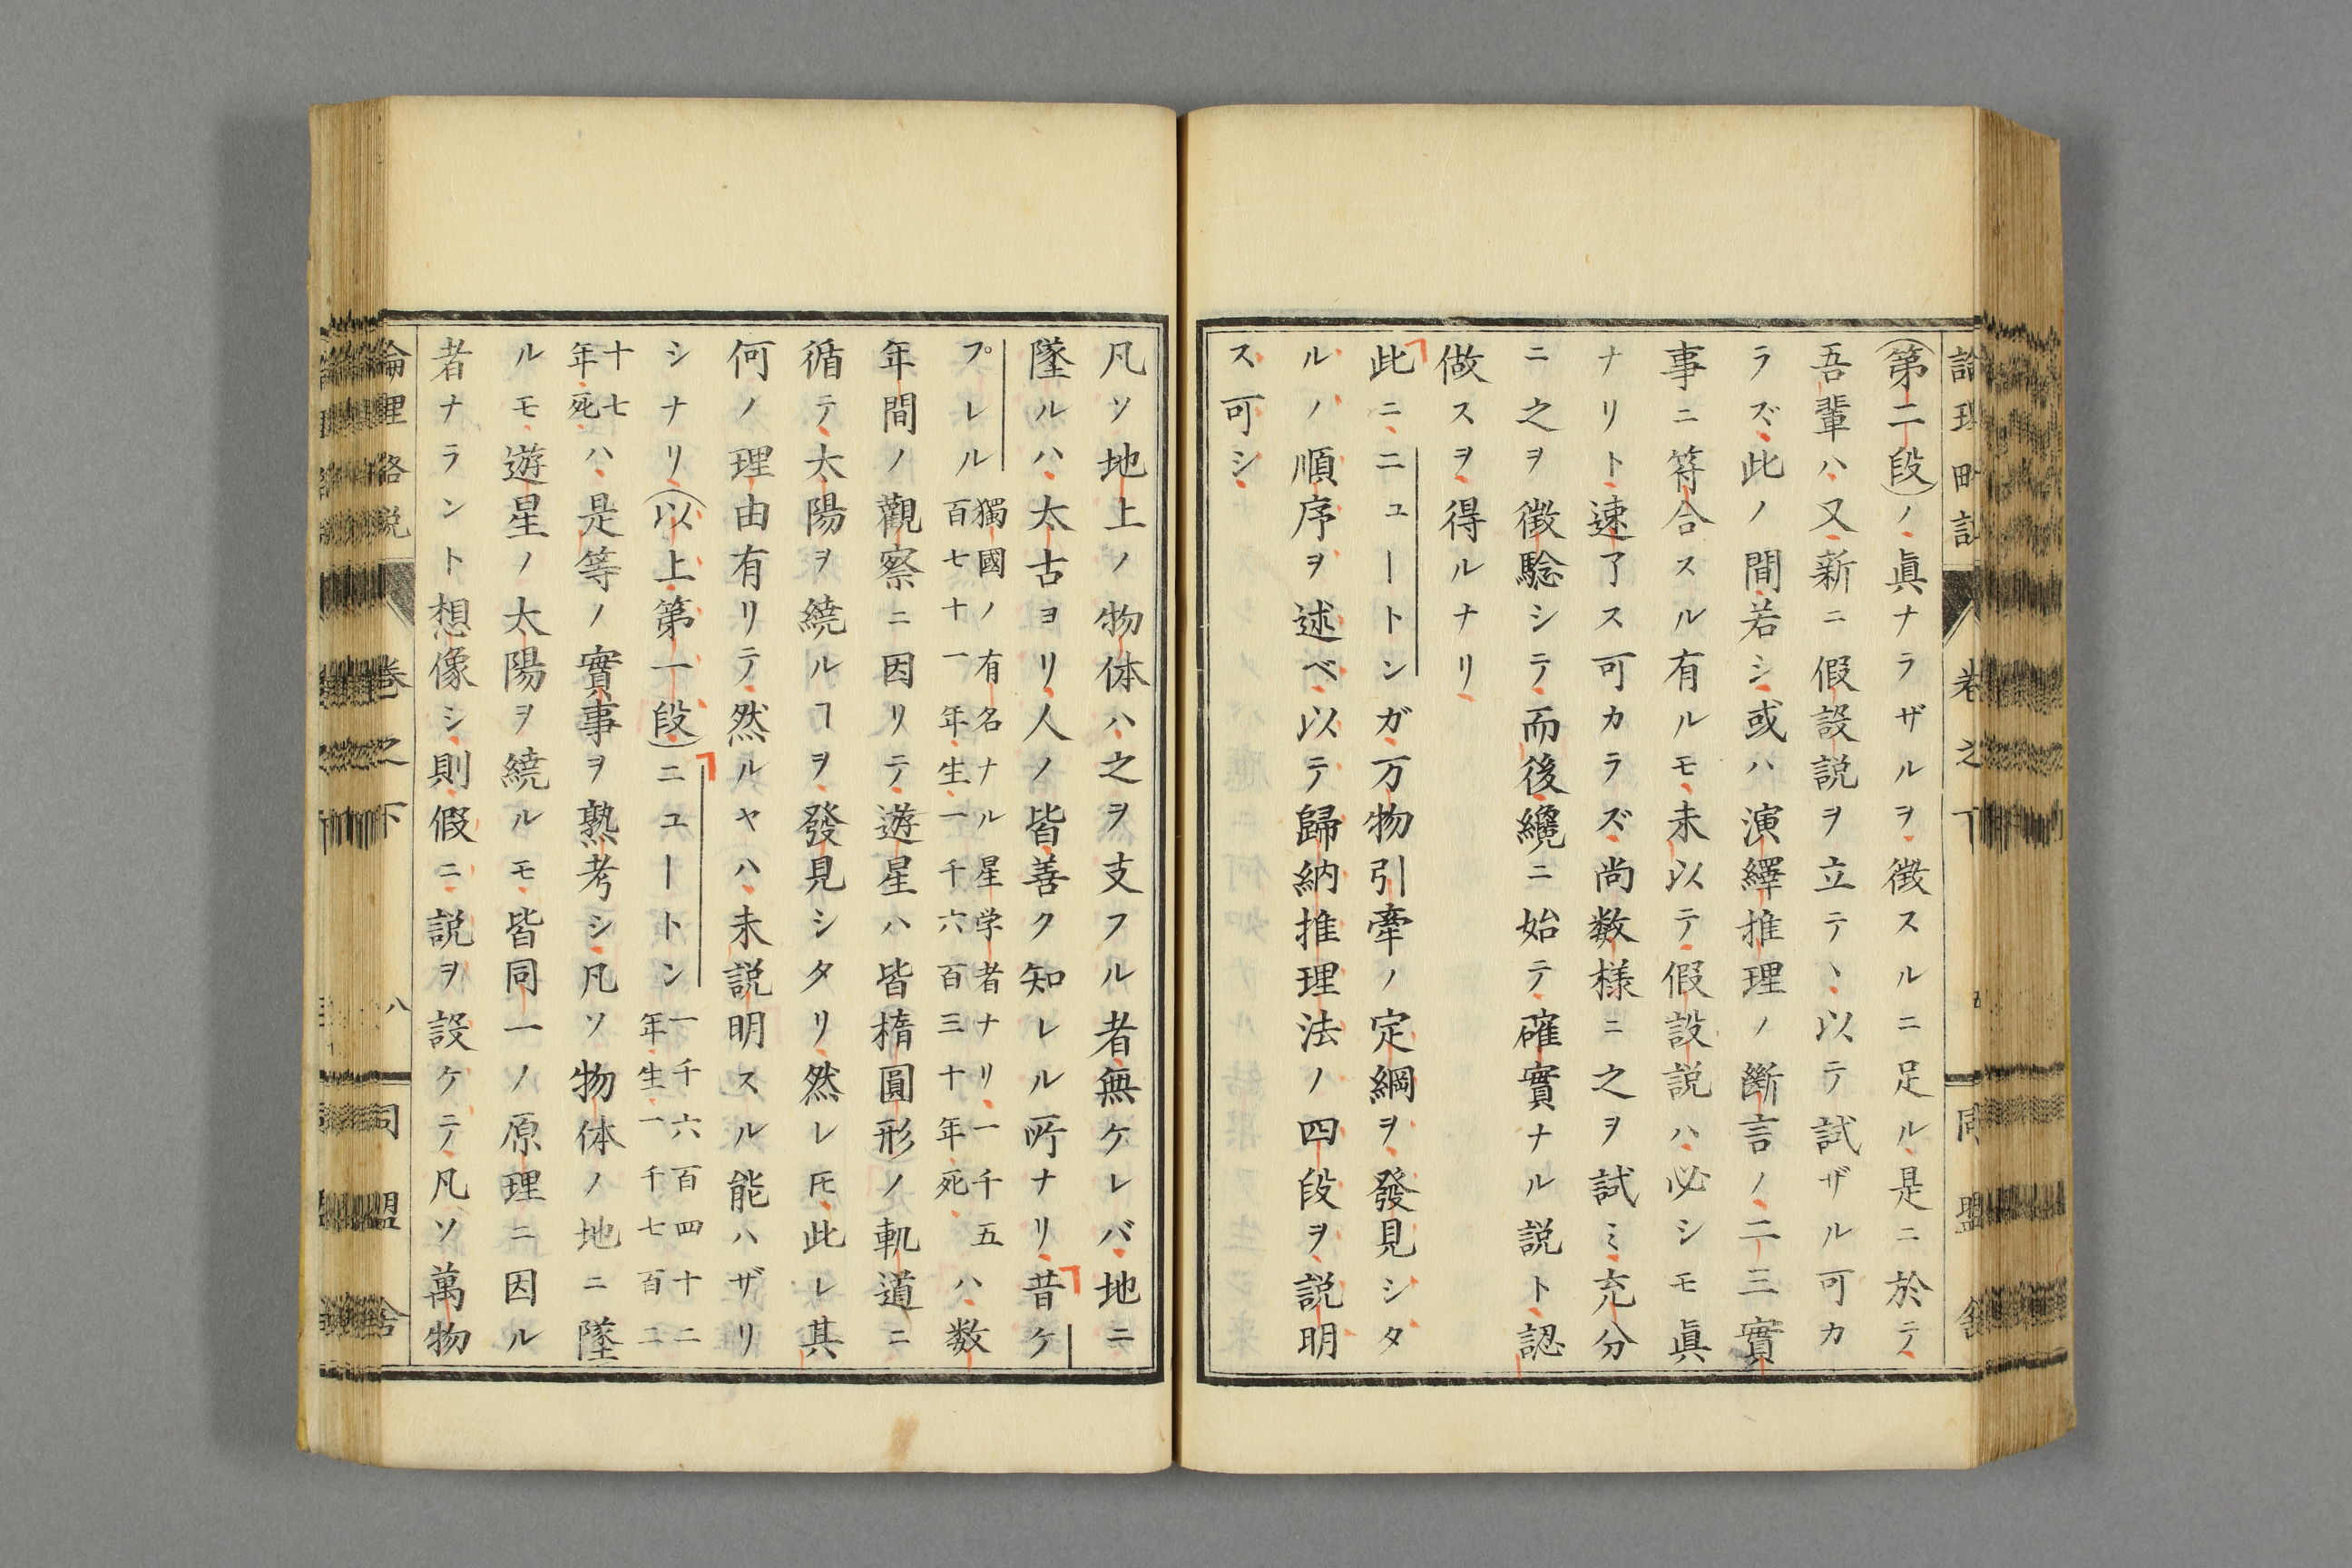 (第二段)ノ眞ナラザルヲ徴スルニ足ル是ニ於テ
吾輩ハ又新ニ假設説ヲ立テヽ以テ試ザル可カ
ラズ此ノ間若シ或ハ演繹推理ノ斷言ノ二三實
事ニ符合スル有ルモ未以テ假設説ハ必シモ眞
ナリト速了ス可カラズ尚数様ニ之ヲ試ミ充分
ニ之ヲ徴騐シテ而後纔ニ始テ確實ナル説ト認
做スヲ得ルナリ
此ニニュートンガ万物引牽ノ定綱ヲ發見シタ
ルノ順序ヲ述ベ以テ歸納推理法ノ四段ヲ説明
ス可シ
凡ソ地上ノ物体ハ之ヲ支フル者無ケレバ地ニ
墜ルハ太古ヨリ人ノ皆善ク知レル所ナリ昔ケ
プレル獨國ノ有名ナル星学者ナリ一千五百七十一年生一千六百三十年死ハ数
年間ノ觀察ニ因リテ遊星ハ皆楕圓形ノ軌道ニ
循テ太陽ヲ繞ルヿヲ發見シタリ然レ𪜈此レ其
何ノ理由有リテ然ルヤハ未説明スル能ハザリ
シナリ(以上第一段)ニュートン一千六百四十二年生一千七百二
十七年死ハ是等ノ實事ヲ熟考シ凡ソ物体ノ地ニ墜
ルモ遊星ノ太陽ヲ繞ルモ皆同一ノ原理ニ因ル
者ナラント想像シ則假ニ説ヲ設ケテ凡ソ萬物
論理略説
巻之下
八
同盟舎